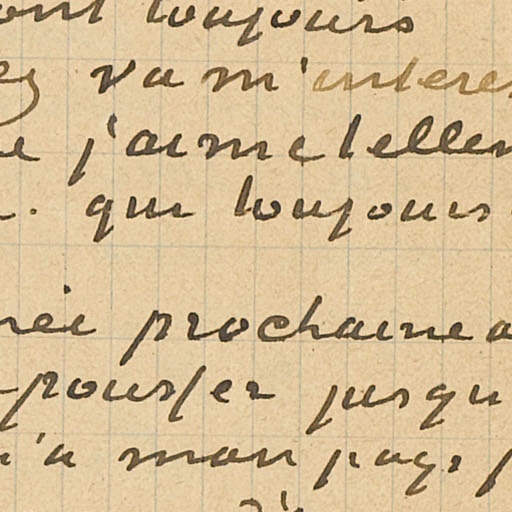 ont toujours
va m'interes
j'aime tellem
. qui toujours
née prochaine a
pousser jusqu
n'a mon pays p